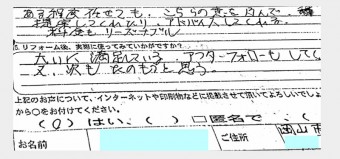 ある程度任せても、こちらの意を汲んで
提案してくれたり、アドバイスしてくれる。
料金もリーズナブル
リフォーム後、実際に使ってみていかがですか?
大いに満足している。アフターフォローもして
次もたのもうと思う。
上記のお声について、インターネットや印刷物などに掲載させて頂いてよろしいでしょ
から○をお付けください。
(○)はい、( )匿名で、(
お名前
ご住所 岡山市